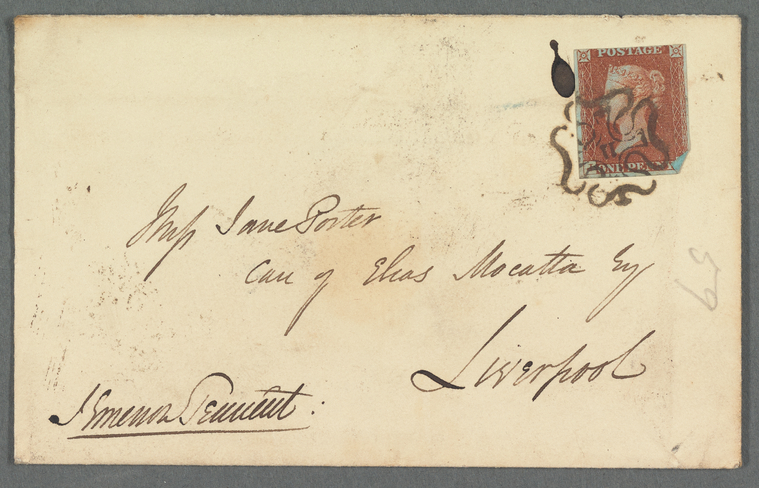 POSTAGE
ONE PENNY
Miss Jane Porter
Care of Elias Mocatta Esq
Liverpool
J Emerson Tennent:
59